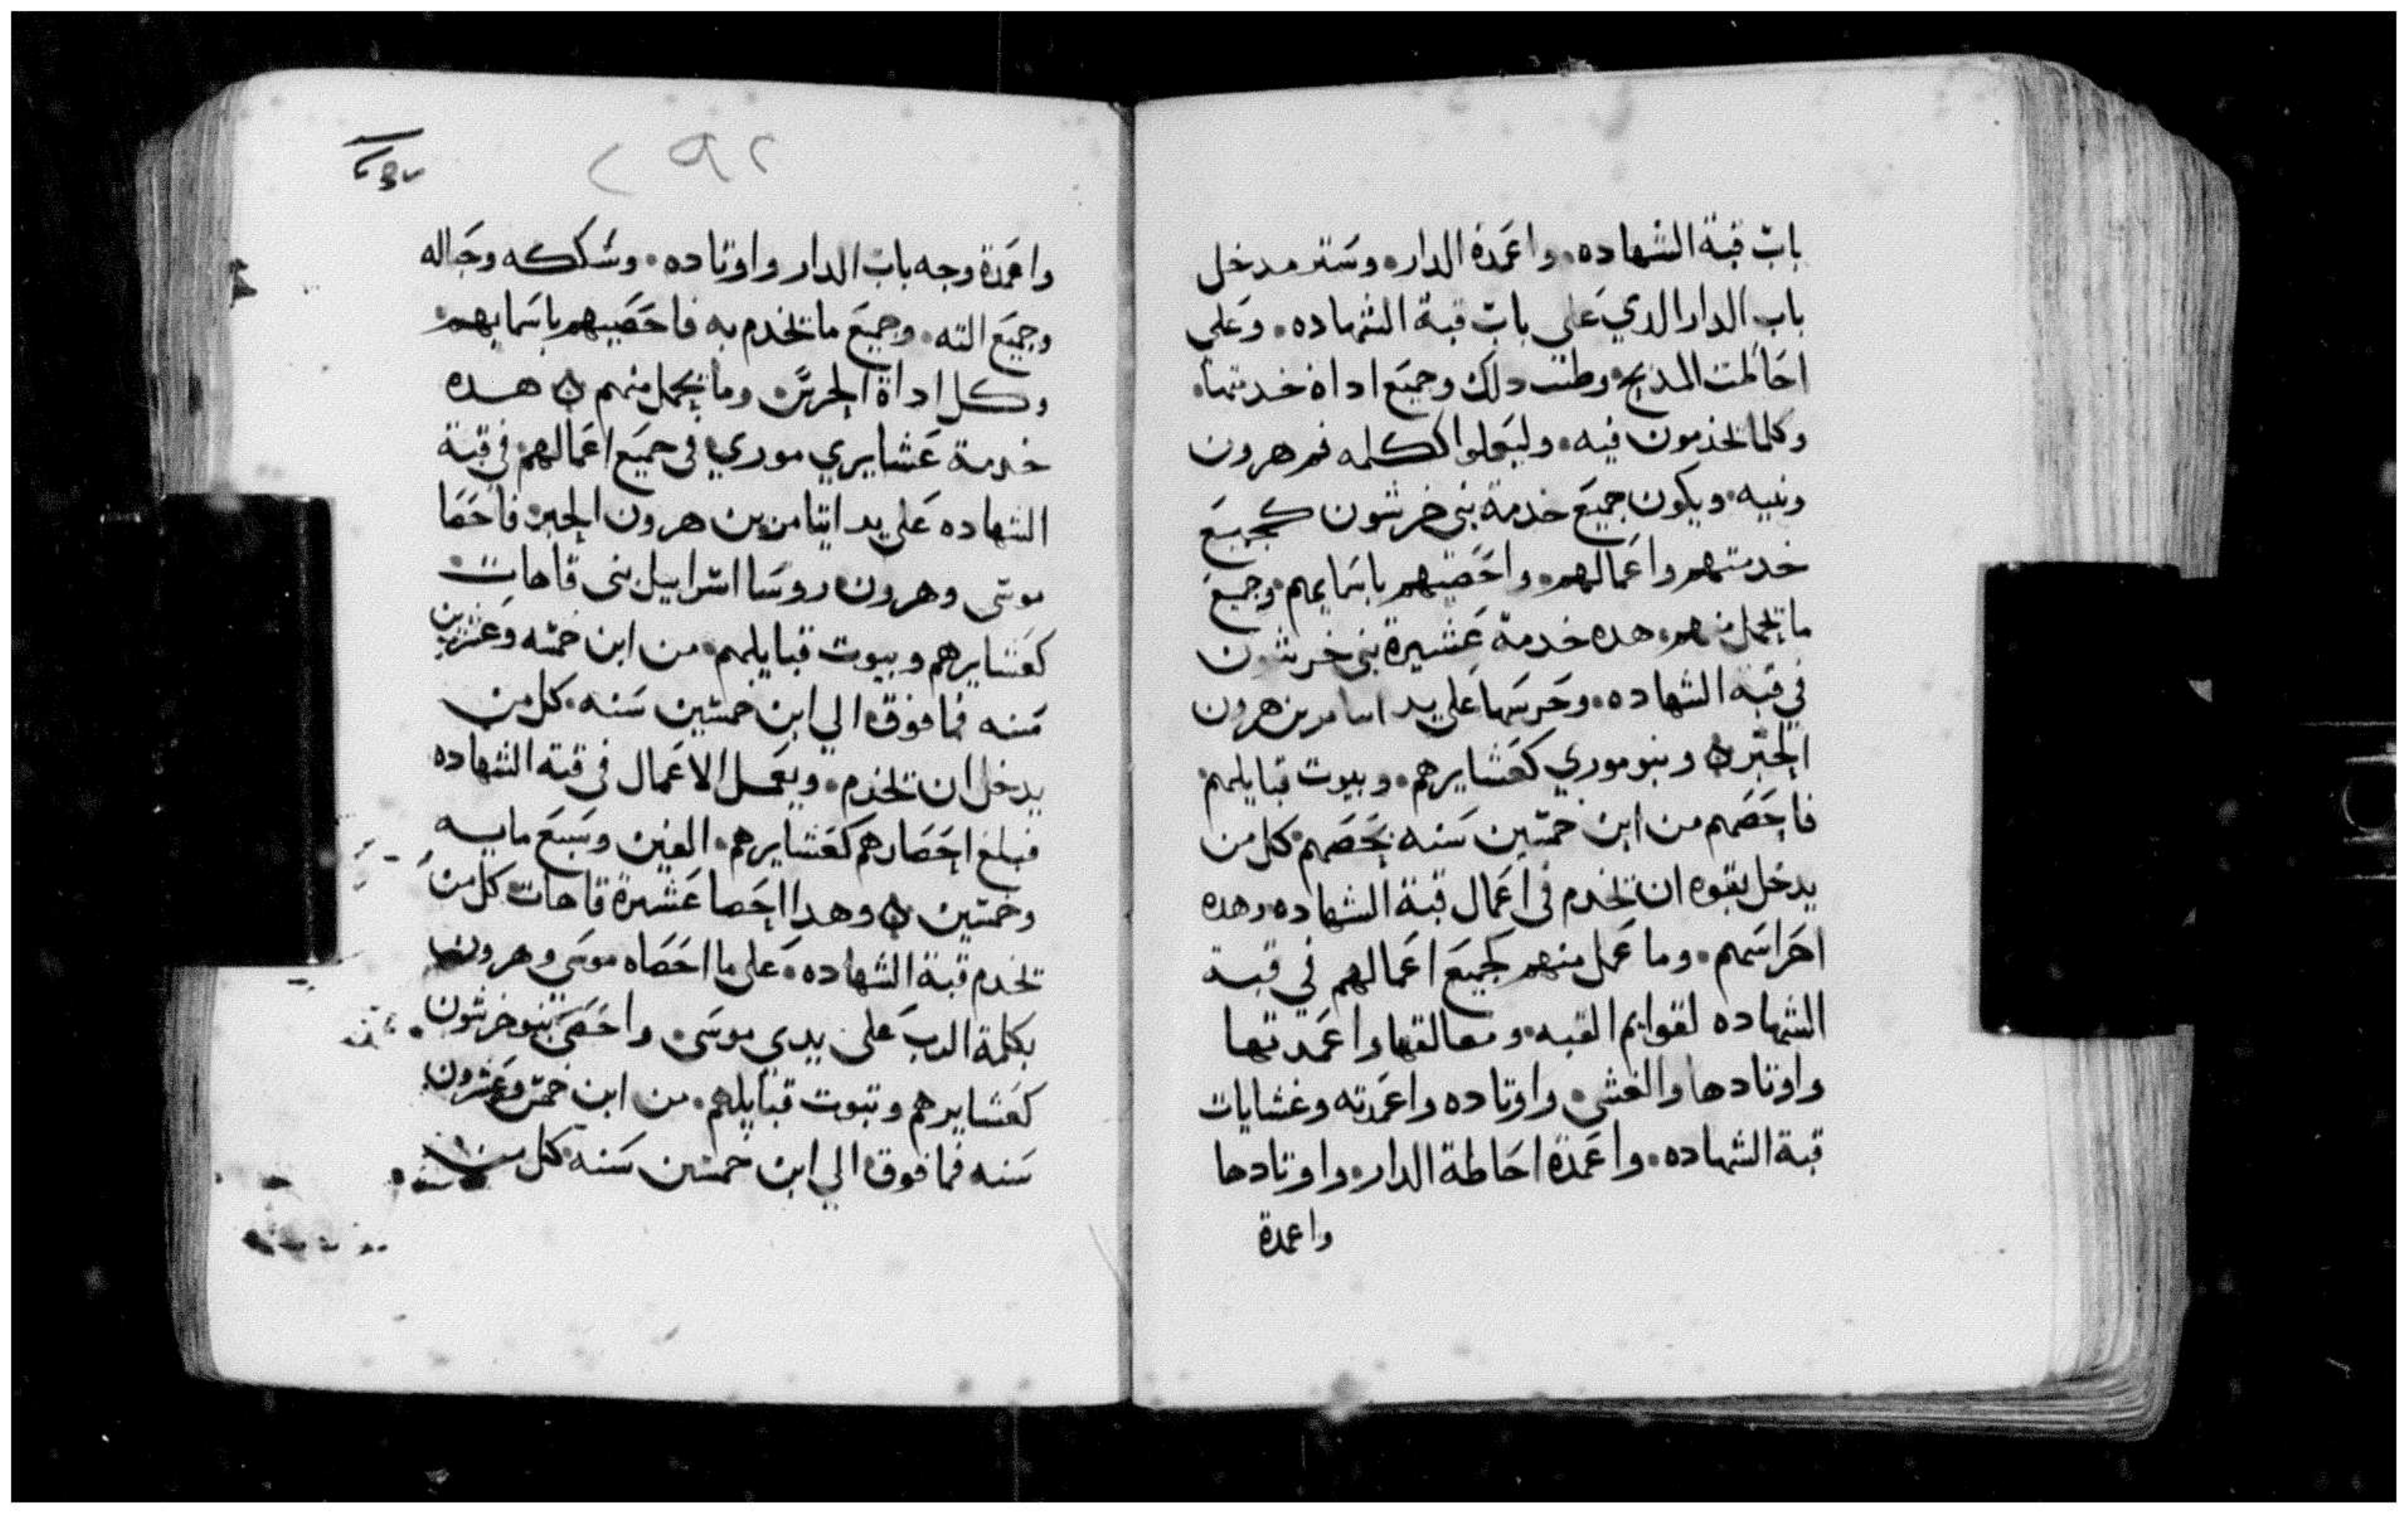 باب قبة الشهاده. واعمدة الدار. وستر مدخل
باب الدار الدي على باب قبة الشهاده. وعلي
احاطت المدبح. وطنب دلك وجميع اداة خدمتها.
وكلما يخدمون فيه. وليعملوا ككلمه فم هرون
وبنيه. ويكون جميع خدمة بني خرشون كجميع
خدمتهم واعمالهم. واحصيهم باسمايهم. وجميع
ما يحمل منهم. هده خدمة عشيرة بني خرشون
في قبة الشهاده. وحرسها على يد اتيامر بن هرون
الحبر ن وبنو موري كعشايرهم. وبيوت قبايلهم.
فاحصهم من ابن خمسين سنه بحصهم. كل من
يدخل بقوه ان يخدم في اعمال قبة الشهاده وهده
احراسهم. وما عمل منهم كجميع اعمالهم في قبة
الشهاده لقوايم القبه. ومعالقها واعمدتها
واوتادها والغشي. واوتاده واعمدته وغشايات
قبة الشهاده. واعمدة احاطة الدار. واوتادها
واعمدة
٢٩٢
واعمدة وجه باب الدار واوتاده. وسككه وحباله
وجميع الته. وجميع ما يخدم به فاحصيهم باسمايهم.
وكل اداة الحرس. وما يحمل منهم ن هده
خدمة عشايري موري في جميع اعمالهم. في قبة
الشهاده على يد ايتامر بن هرون الحبر. فاحصا
موسى وهرون روسا اسراييل بني قاهات.
كعشايرهم وبيوت قبايلهم. من ابن خمسه وعشرين
سنه فما فوق الي ابن خمسين سنه. كل من
يدخل ان يخدم. ويعمل الاعمال في قبة الشهاده
فبلغ احصارهم كعشايرهم. الفين وسبع مايه
وخمسين ن وهدا احصا عشيرة قاهات كل من
يخدم قبة الشهاده. على ما احصاه موسى وهرون
بكلمة الرب على يدي موسى. واحصي بنو خرشون.
كعشايرهم وبيوت قبايلهم. من ابن خمس وعشرون
سنه فما فوق الي ابن خمسين سنه. كل من